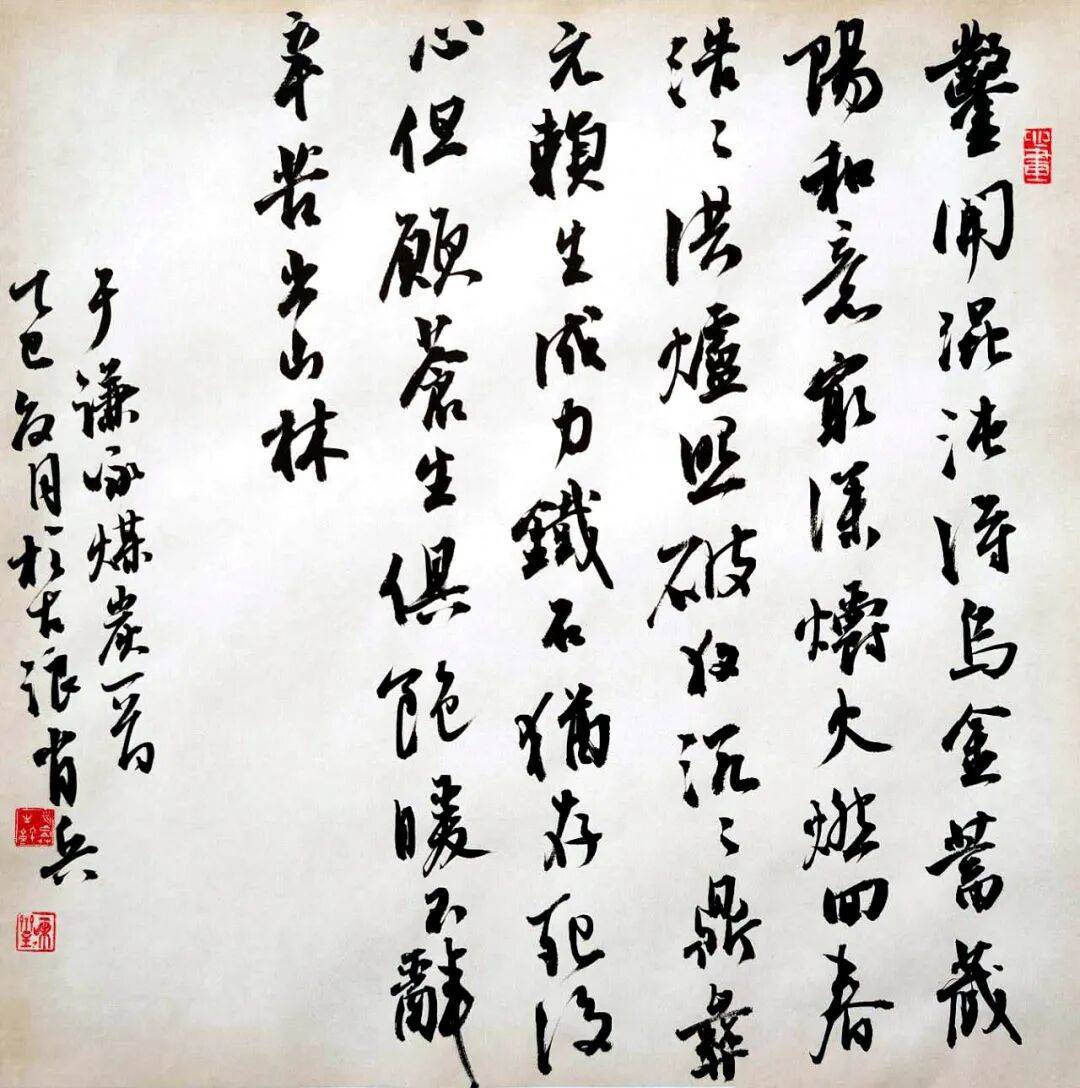 鑿開混沌得烏金蓄藏
陽和意最深爝火燃回春
浩〻洪爐照破夜沉〻鼎彝
元賴生成力鐵石猶存死後
心但願蒼生俱飽暖不辭
辛苦出山林
于謙咏煤炭一首
乙巳夏月於古浪肖兵